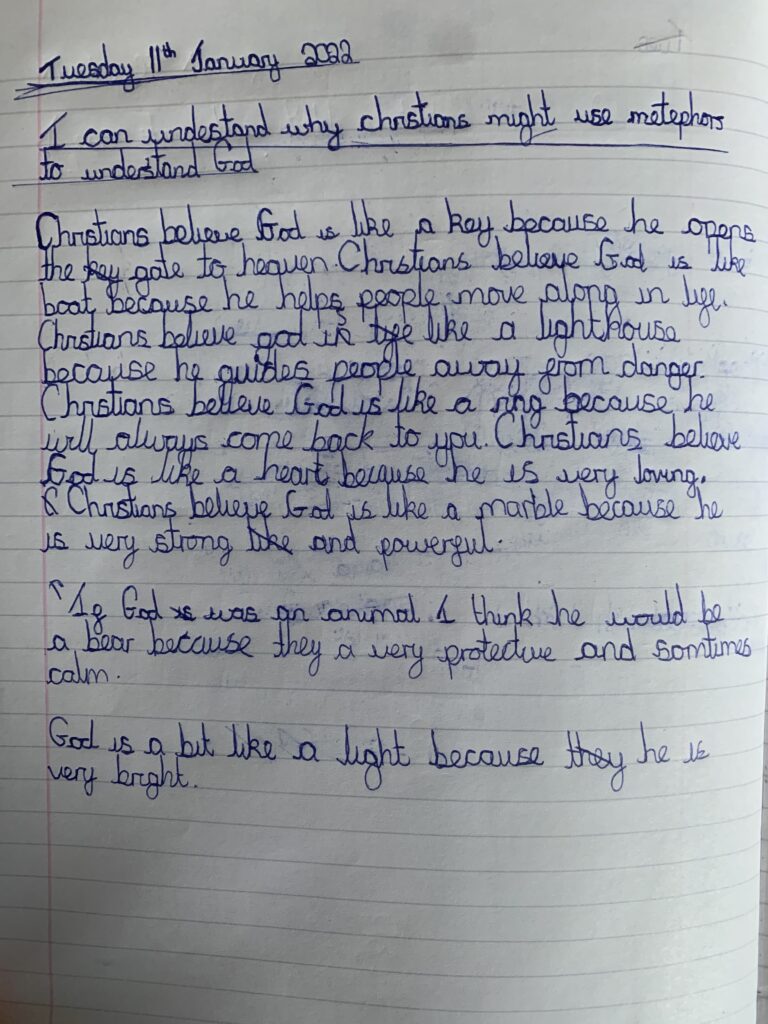 Tuesday 11th January 2022
I can undestand why christians might use metephors
to understand God
Christians believe God is like a key because he opens
the key gate to heaven. Christians believe God is like
boat because he helps people move along in life.
Christians believe god is like a lighthouse
because he guides people away from danger.
Christians believe God is like a ring because he
will always come back to you. Christians believe
God is like a heart because he is very loving.
Christians believe God is like a marble because he
is very strong like and powerful.
If God is was an animal I think he would be
a bear because they a very protective and somtimes
calm.
God is a bit like a light because they he is
very bright.